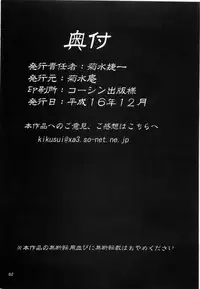 奥付
発行責任者：菊水捷一
発行元：菊水庵
印刷所：コーシン出版様
発行日：平成16年12月
本作品へのご意見、ご感想はこちらへ
kikusui@xa3.so-net.ne.jp
※本作品の無断転用並びに無断転載はおやめください
62